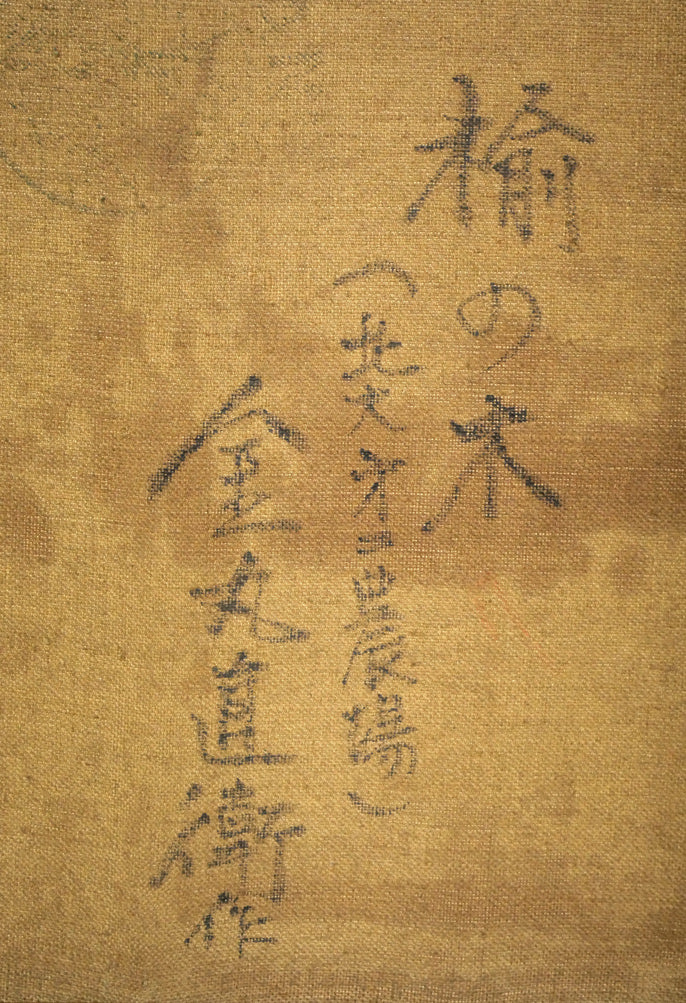 楡の木
（北大第二農場）
金丸直衛作